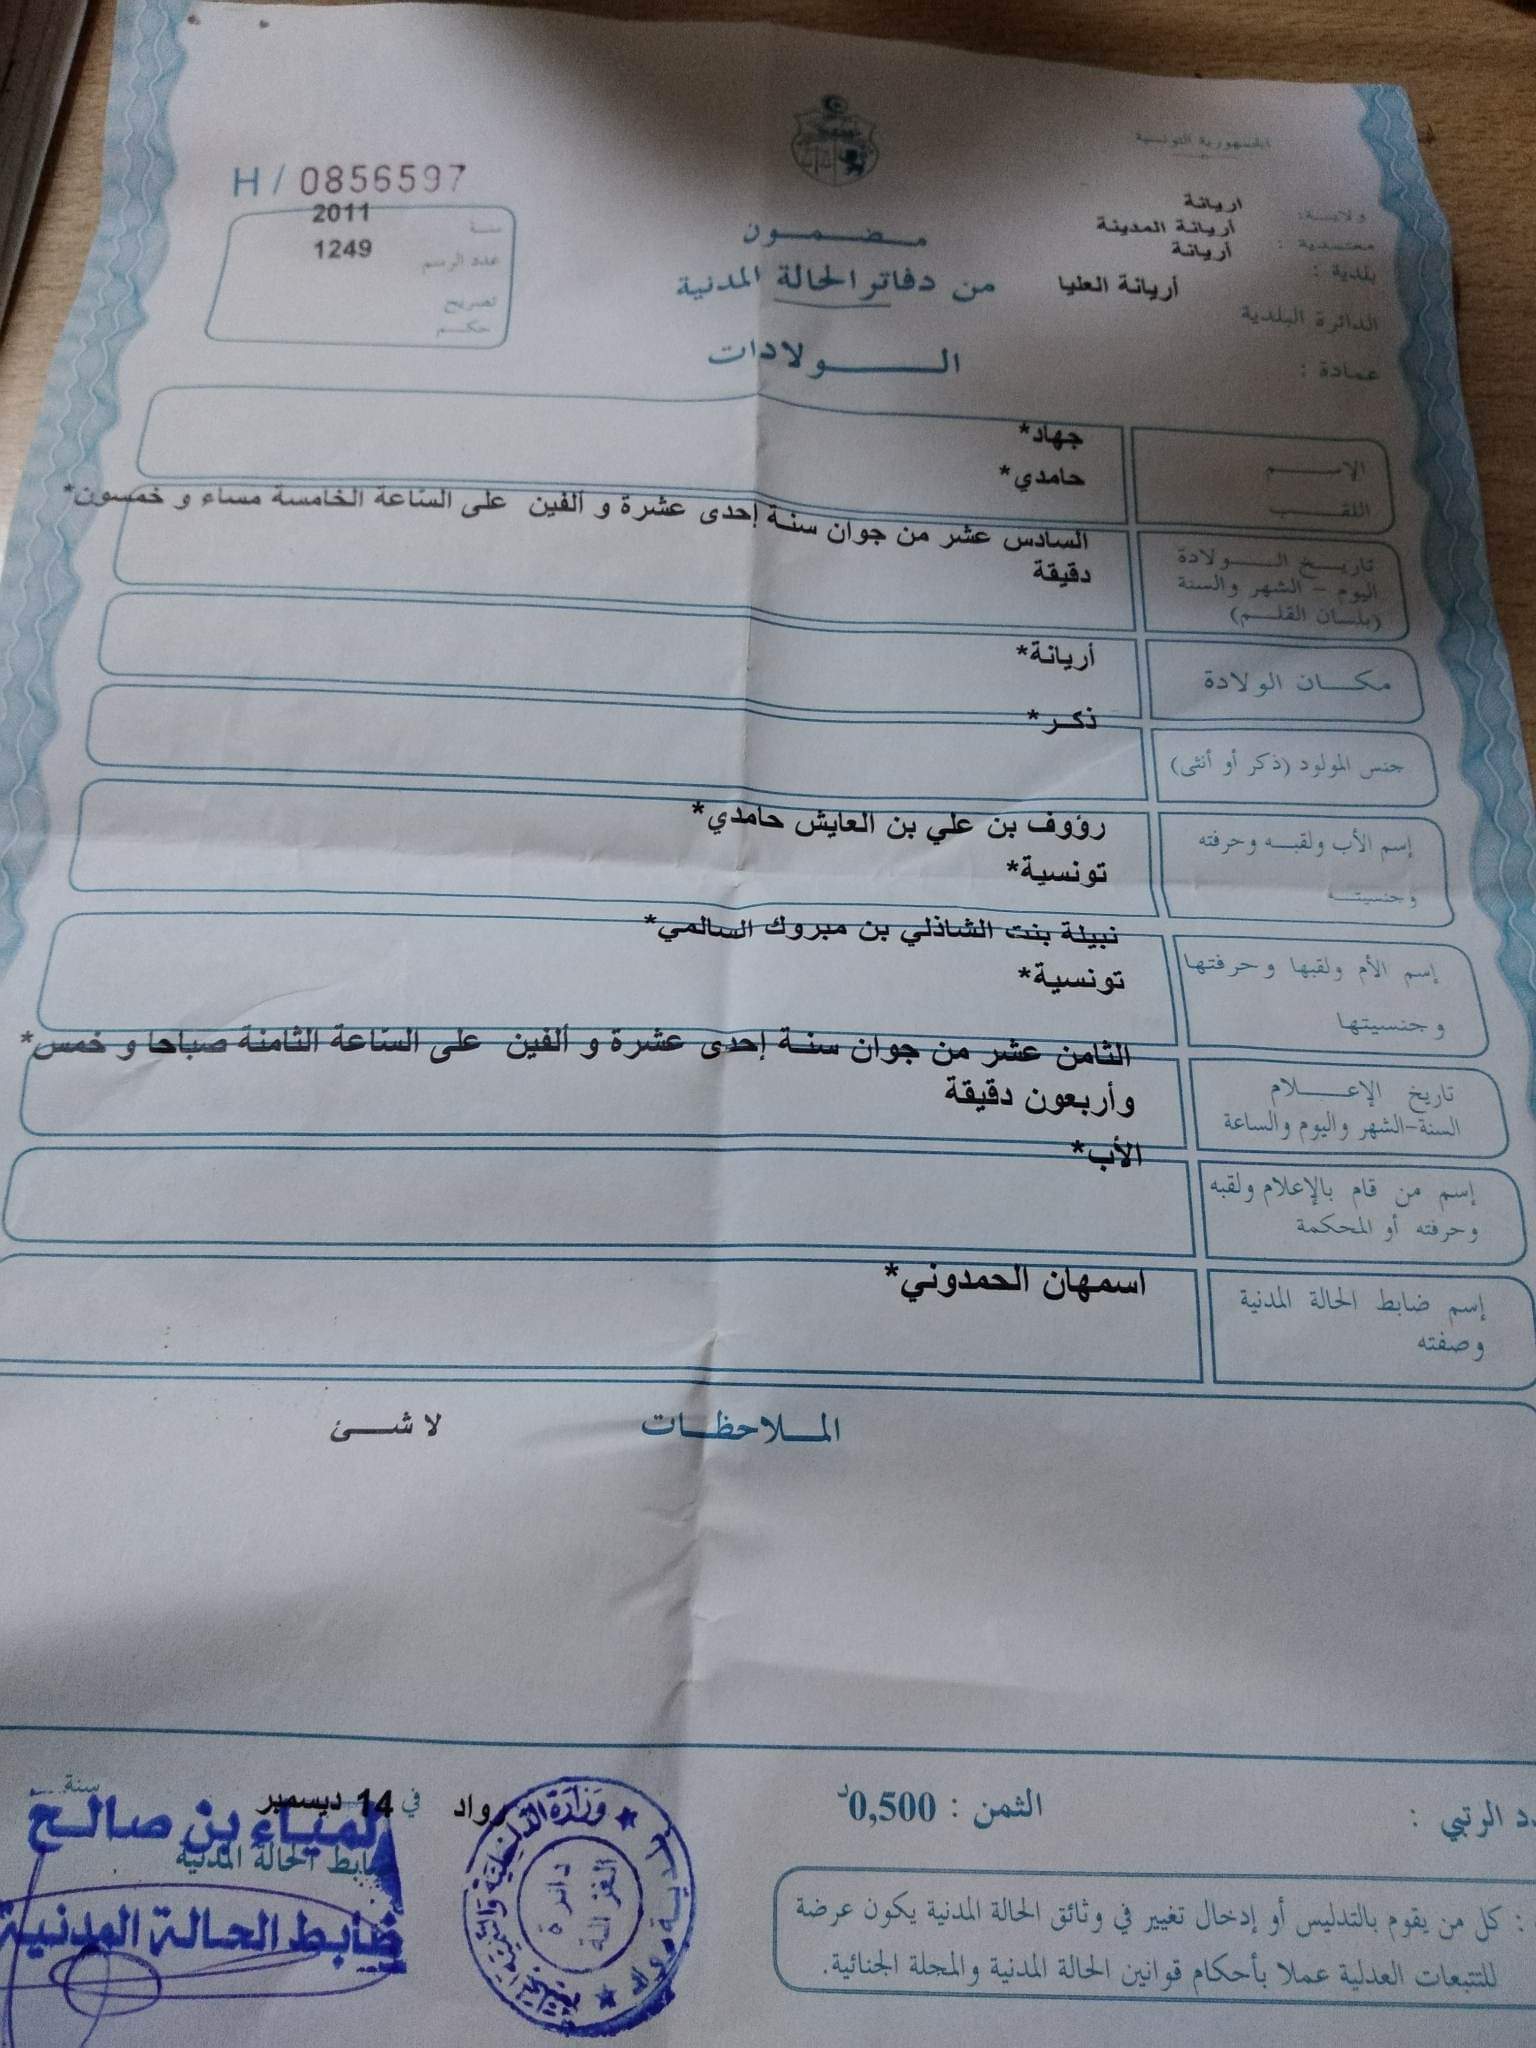 الجمهورية التونسية
H / 0856597
ولاية: اريانة
معتمدية : أريانة المدينة
بلدية : أريانة
الدائرة البلدية أريانة العليا
عمادة :
سنة 2011
عدد الرسم 1249
تصريح
حكم
مضمون
من دفاتر الحالة المدنية
الولادات
الإسم جهاد*
اللقب حامدي*
تاريخ الولادة السادس عشر من جوان سنة إحدى عشرة و ألفين على الساعة الخامسة مساء و خمسون*
اليوم - الشهر والسنة دقيقة
(بلسان القلم)
مكان الولادة أريانة*
جنس المولود (ذكر أو أنثى) ذكر*
إسم الأب ولقبه وحرفته رؤوف بن علي بن العايش حامدي*
وجنسيته تونسية*
إسم الأم ولقبها وحرفتها نبيلة بنت الشاذلي بن مبروك السالمي*
وجنسيتها تونسية*
تاريخ الإعلام الثامن عشر من جوان سنة إحدى عشرة و ألفين على الساعة الثامنة صباحا و خمس*
السنة-الشهر واليوم والساعة وأربعون دقيقة
إسم من قام بالإعلام ولقبه الأب*
وحرفته أو المحكمة
إسم ضابط الحالة المدنية اسمهان الحمدوني*
وصفته
الملاحظات لا شئ
الرتبي :
الثمن : 0,500د
رواد في 14 ديسمبر سنة
لمياء بن صالح
ضابط الحالة المدنية
ضابط الحالة المدنية
وزارة الداخلية
دائرة
الغزالة
: كل من يقوم بالتدليس أو إدخال تغيير في وثائق الحالة المدنية يكون عرضة
للتتبعات العدلية عملا بأحكام قوانين الحالة المدنية والمجلة الجنائية.